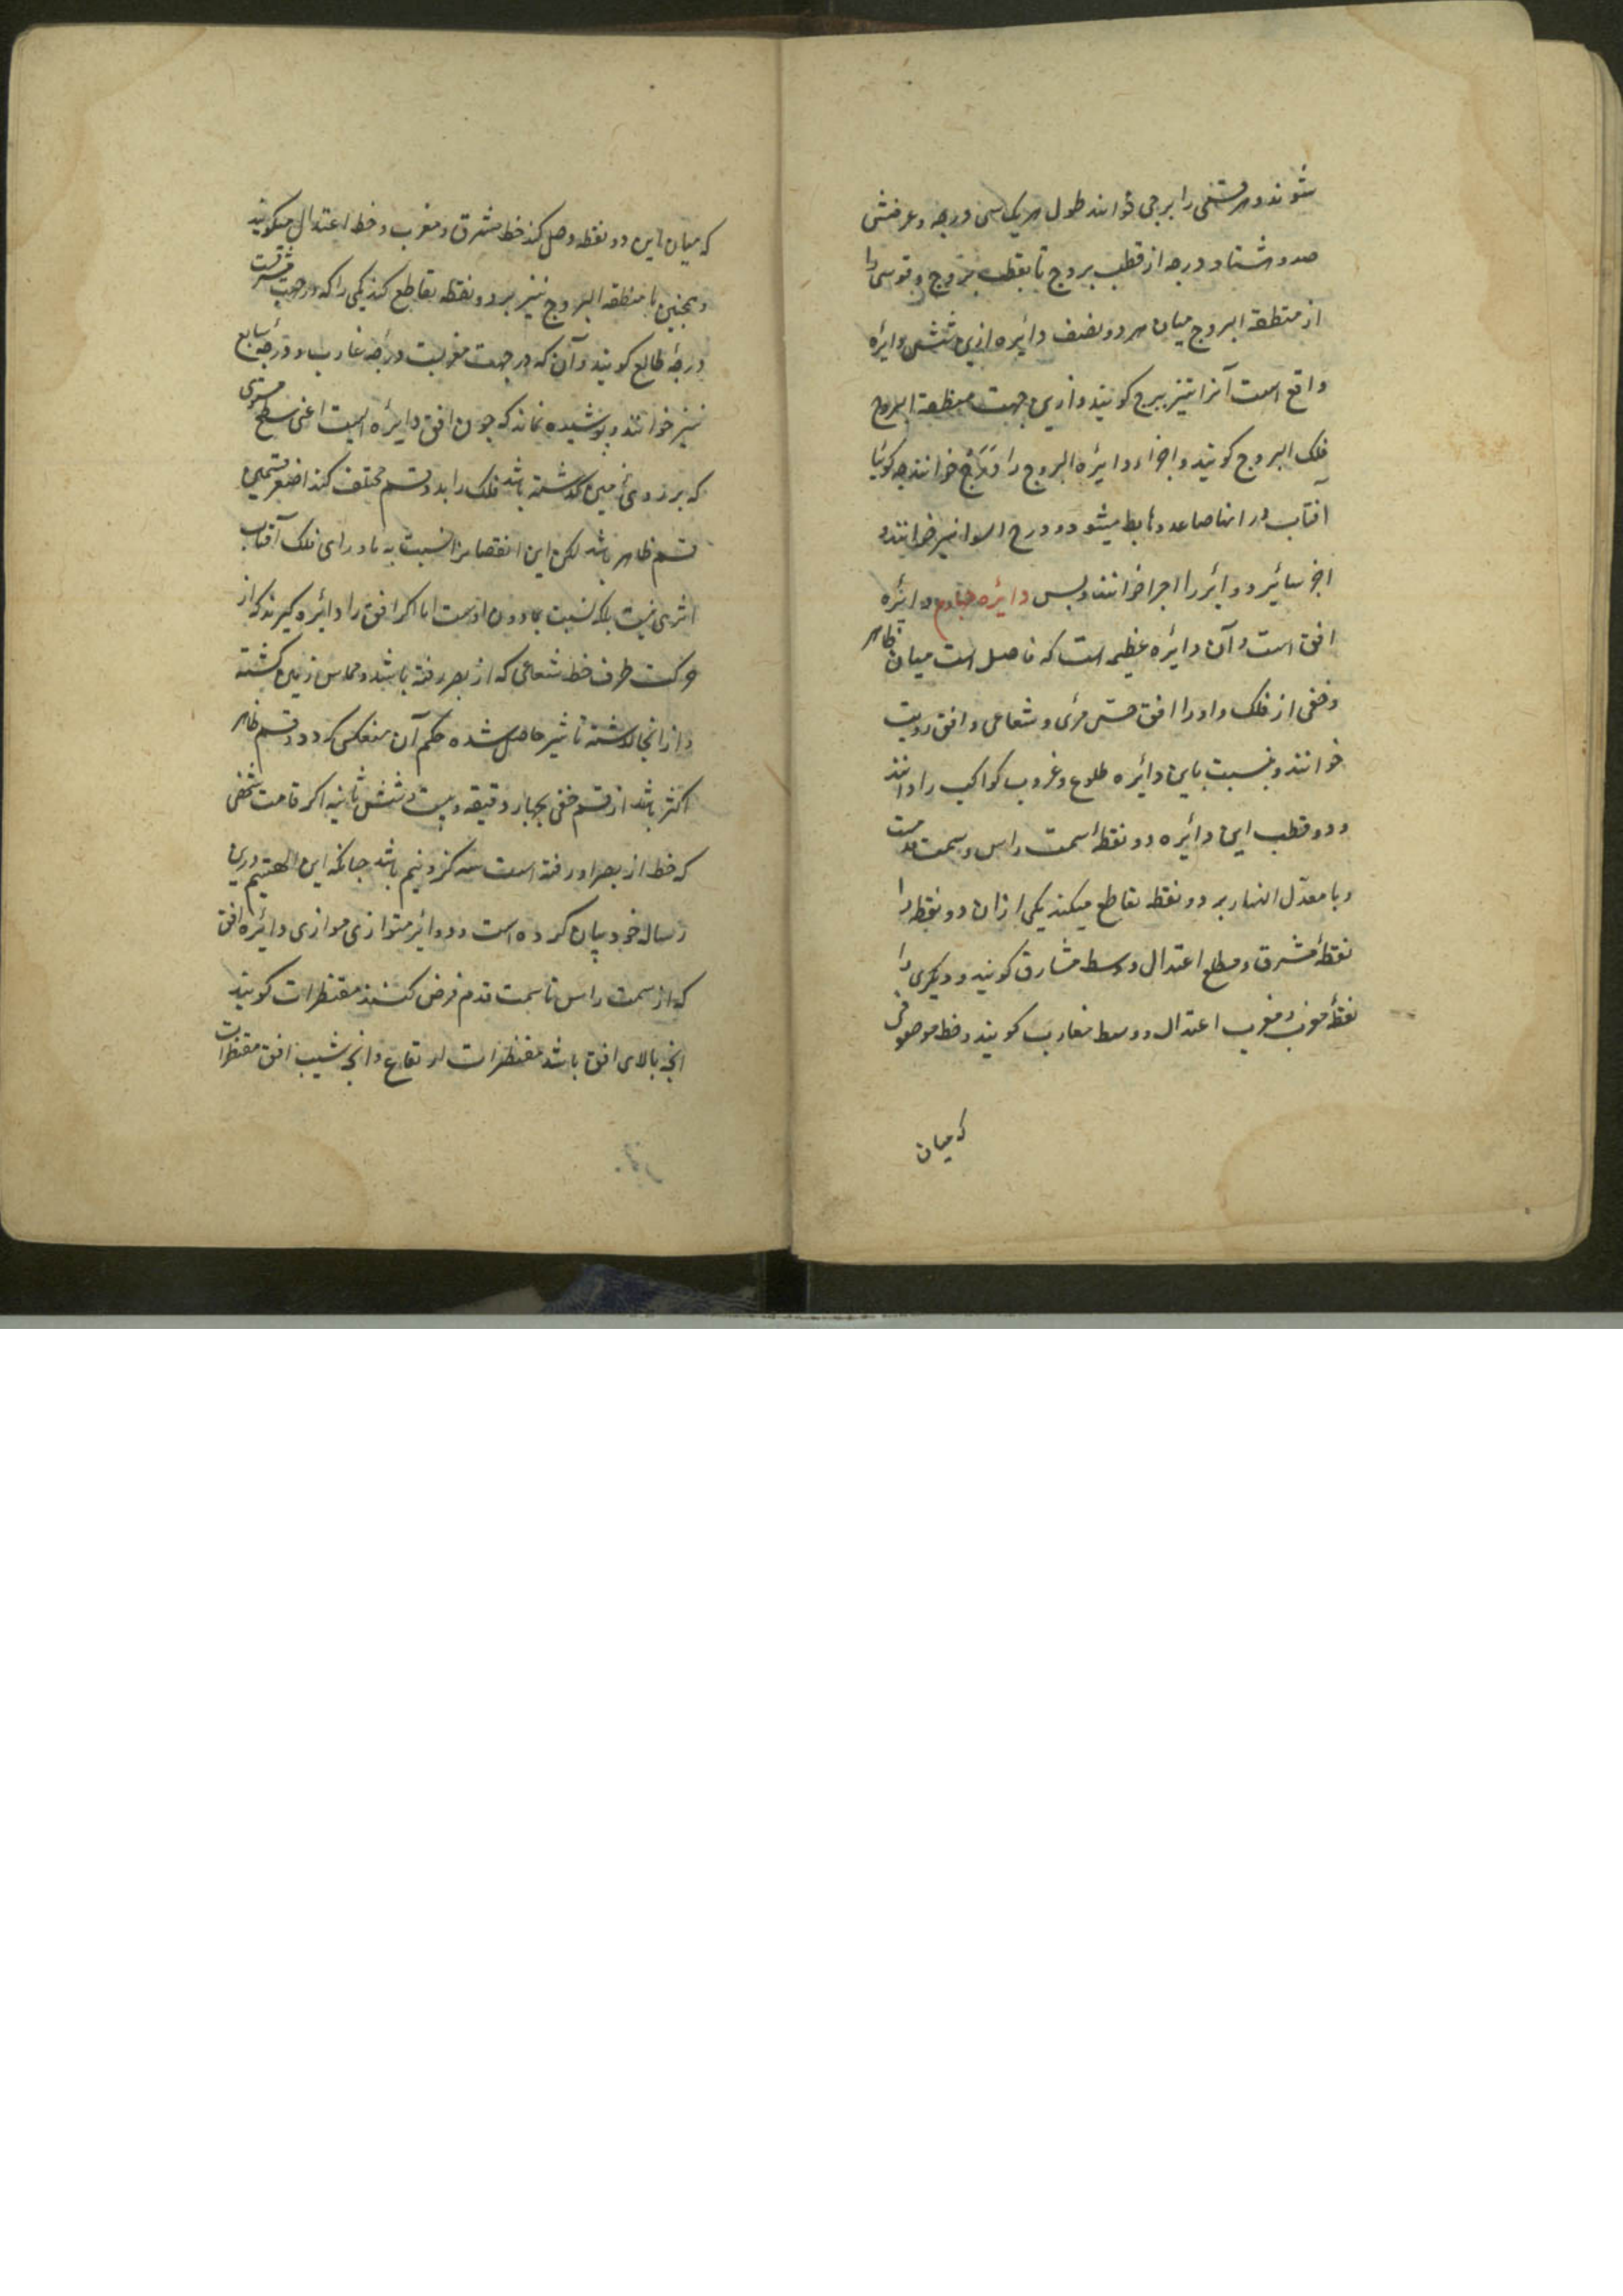 شوند و هر قسمی را برجی خوانند طول هر یک سی درجه و عرضش
صد و هشتاد درجه از قطب بروج تا بقطب بروج و قوسی را
از منطقة البروج میان هر دو نصف دائره ازین شش دائره
واقع است آنرا نیز برج کویند و ازین جهت منطقة البروج
فلک البروج کویند و اجزاء دائره البروج را دَرَج خوانند چه کوئیا
آفتاب در انها صاعد و هابط میشود و درج السوا نیز خوانند و
اجزای سائر دوائر را اجزا خوانند و بس دائره چهارم دائره
افق است و آن دائره عظیمه است که فاصل است میان ظاهر
و خفی از فلک و او را افق حسّی مرئی و شعاعی و افق رویت
خوانند و بنسبت باین دائره طلوع و غروب کواکب را دانند
و دو قطب این دائره دو نقطهٔ سمت راس و سمت قدمست
و با معدّل النهار بر دو نقطه تقاطع میکند یکی ازان دو نقطه را
نقطهٔ مشرق و مطلع اعتدال و وسط مشارق کویند و دیکری را
نقطهٔ مغرب و مغیب اعتدال و وسط مغارب کویند و خط موصولی
که میان
که میان این دو نقطه وصل کند خط مشرق و مغرب و خط اعتدال میکویند
و همچنین با منطقه البروج نیز بر دو نقطه تقاطع کند یکی را که در جهت مشرقست
درجهٔ طالع کویند و آن که در جهت مغربست درجهٔ غارب و درجهٔ سابع
نیز خوانند و پوشیده نماند که چون افق دایره ایست اعنی سطح مستوی
که بر روی زمین گذشته باشد فلک را بدو قسم مختلف کند اصغر قسمین
قسم ظاهر باشد لکن این انقصام را نسبت به ماورای فلک آفتاب
اثری نیست بلکه نسبت بمادون اوست اما اکر افق را دایره کیرند که از
حرکت طرف خط شعاعی که از بصر رفته باشد و مماس زمین کشته
و از انجا گذشته تاثیر حاصل شده حکم آن منعکس کردد و قسم ظاهر
اکثر باشد از قسم خفی بچهار دقیقه و بیست و شش ثانیه اکر قامت شخصی
که خط از بصر او رفته است سه کز و نیم باشد چنانکه ابن الهیثم درین
رساله خود بیان کرده است و دوائر متوازی موازی دائره افق
که از سمت راس تا سمت قدم فرض کنند مقنطرات کویند
انچه بالای افق باشد مقنطرات ارتفاع و انچه شیب افق مقنطرات